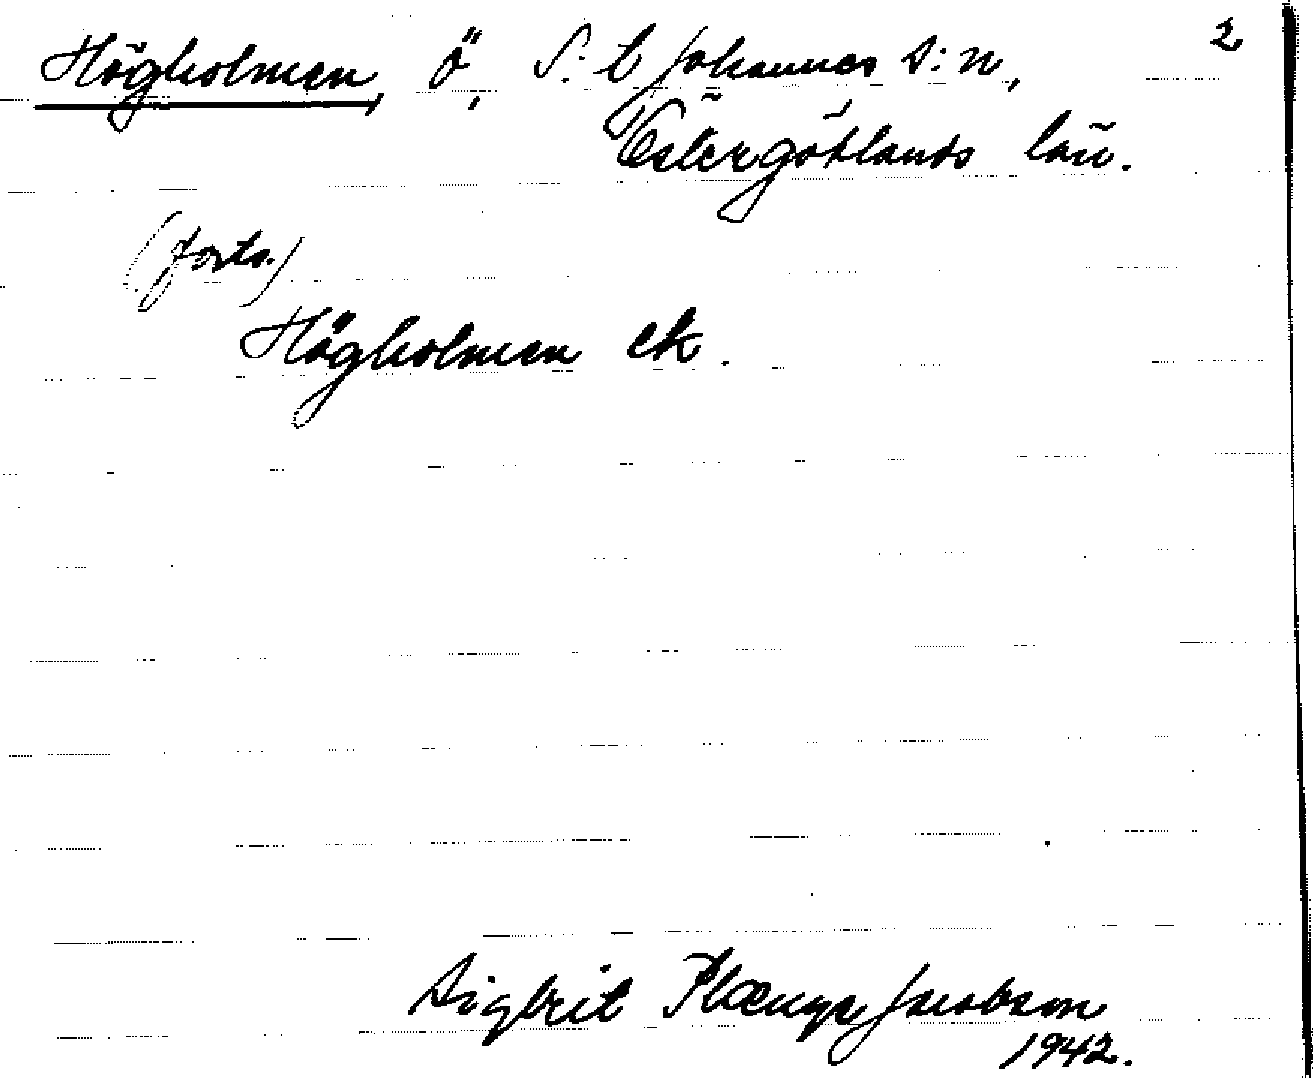 2
Högholmen, ö, S:t Johannes s:n,
Östergötlands län.
(forts.)
Högholmen ek.
Sigbrit Plænge Jacobson
1942.